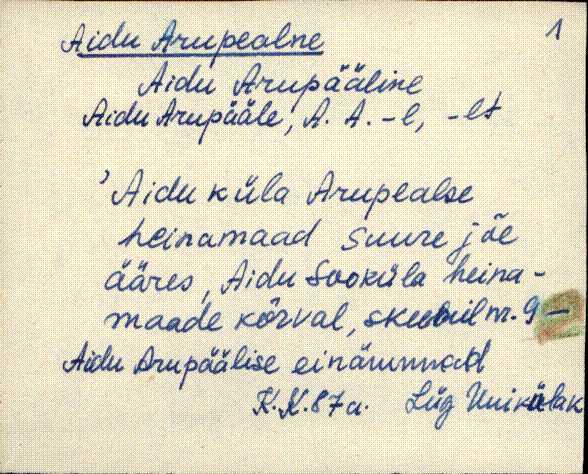 1
Aidu Arupealne
Aidu Arupääline
Aidu Arupääle, A. A. -l, -lt
'Aidu küla Arupealse
heinamaad Suure jõe
ääres, Aidu Sooküla heina-
maade kõrval, skeemil nr. 9 -
Aidu Arupäälise einämmad
K.K. 87 a. Lüg Uniküla K